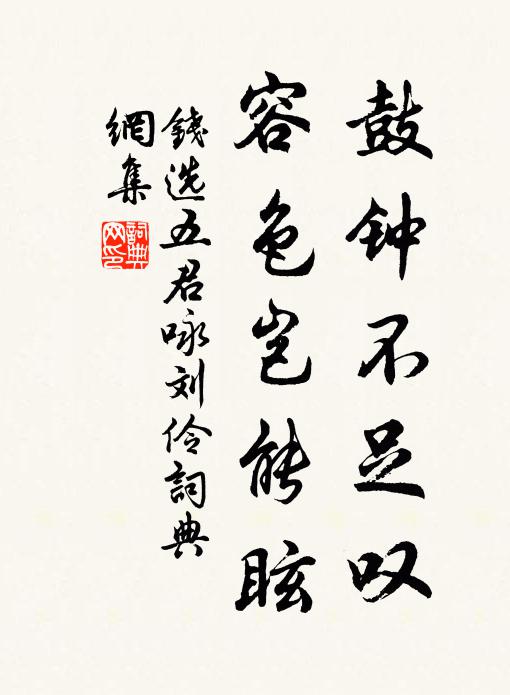 鼓钟不足叹
容色岂能眩
錢选五君咏刘伶詞典
網集
詞典
网印